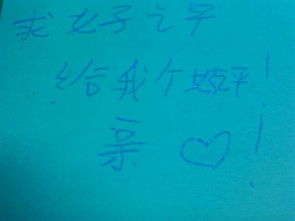 求女子之平
给我个好评!
亲♡!